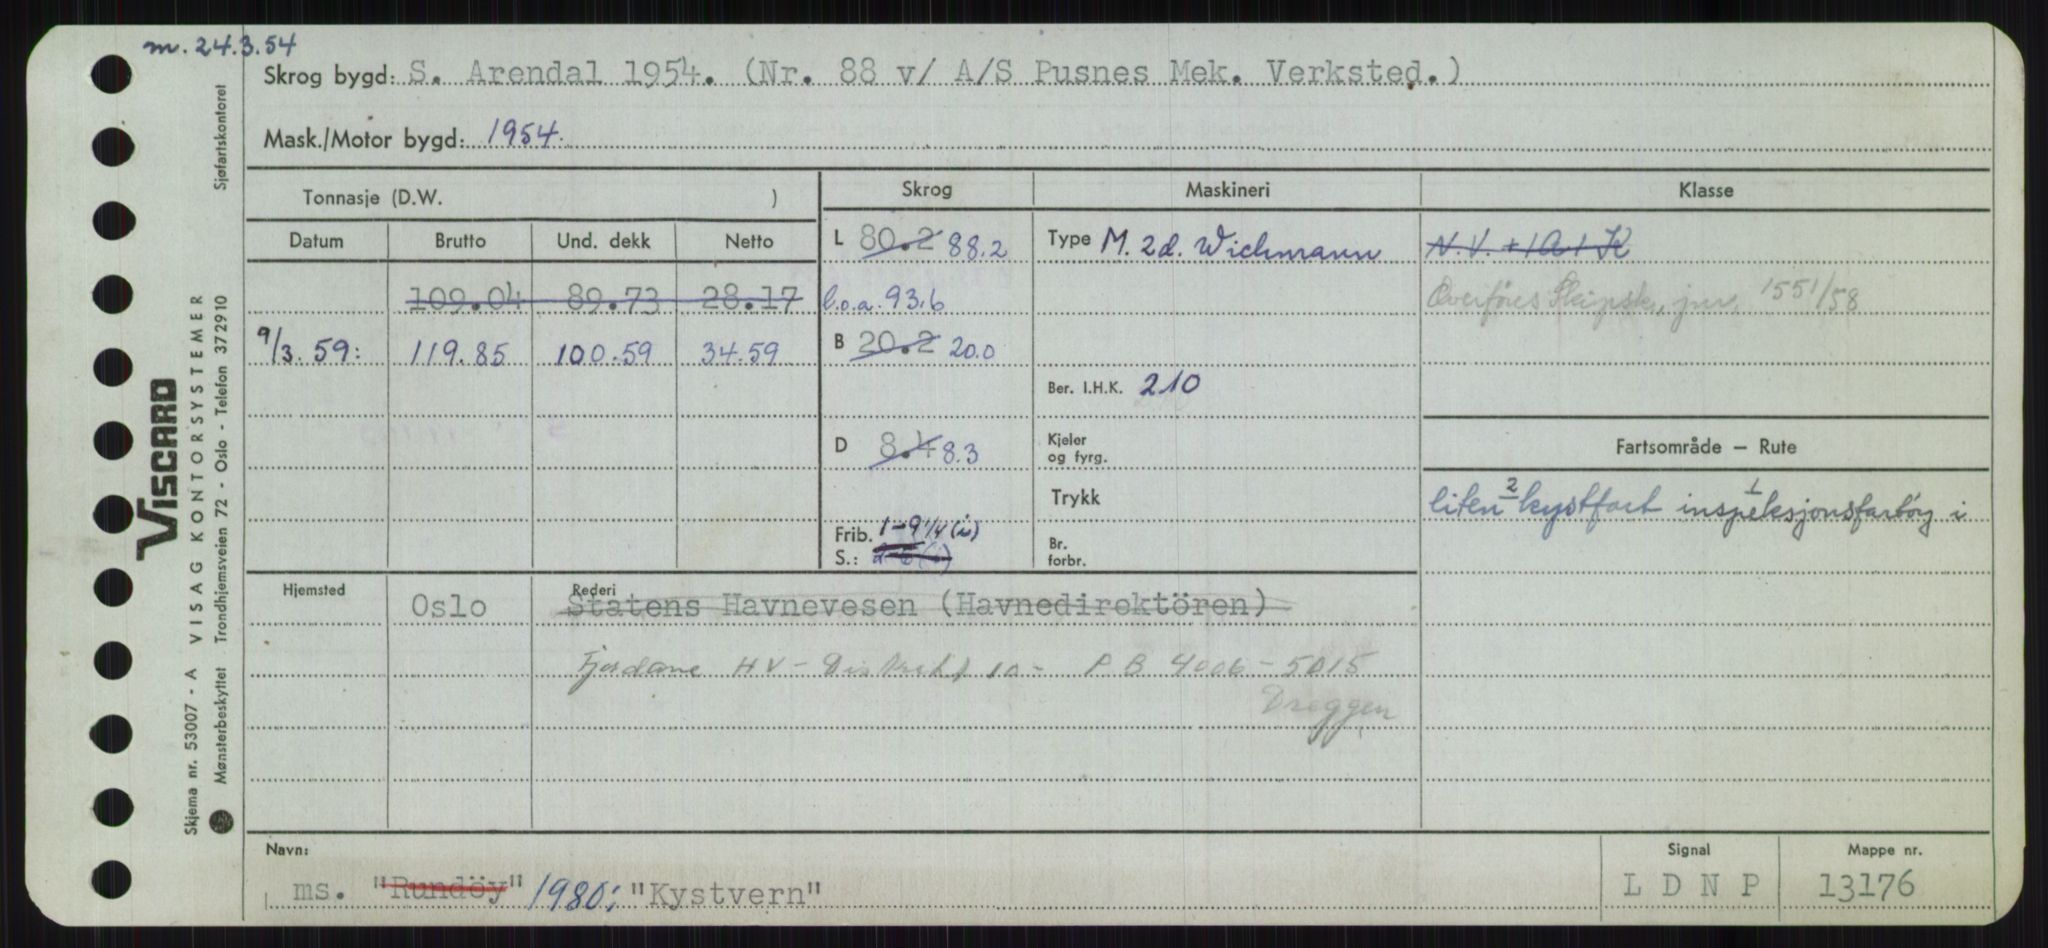 m. 24.3.54
Skrog bygd: S. Arendal 1954. (Nr. 88 v/ A/S Pusnes Mek. Verksted.)
Mask./Motor bygd: 1954.
Tonnasje (D.W. )
Skrog
Maskineri
Klasse
Datum Brutto Und. dekk Netto
L 80.2 88.2
Type M. 2d. Wichmann
N.V. +1A1 K
109.04 89.73 28.17
l.o.a. 93,6
Overføres Skipsk. jnr. 1551/58
9/3.59: 119.85 100.59 34.59
B 20.2 20.0
Ber. I.H.K. 210
D 8.4 8.3
Kjeler
og fyrg.
Fartsområde – Rute
Trykk
liten 2 kystfart inspeksjonsfartøy 1 i
Frib. 1-9 1/4 (i)
S.:
Br.
forbr.
Hjemsted Oslo
Rederi
Statens Havnevesen (Havnedirektören)
Fjordane HV - Distrikt 10 - P B 4006 - 5015
Dreggen
Navn:
ms. "Rundöy" 1980; "Kystvern"
Signal
L D N P
Mappe nr.
13176
VISCARD
Skjema nr. 53007 - A VISAG KONTORSYSTEMER
Mønsterbeskyttet Trondhjemsveien 72 - Oslo - Telefon 372910
Sjøfartskontoret